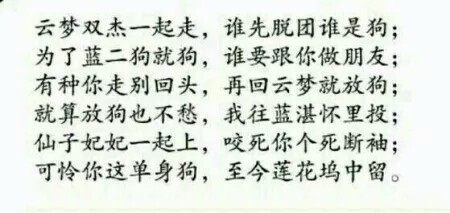 云梦双杰一起走，谁先脱团谁是狗；
为了蓝二狗就狗，谁要跟你做朋友；
有种你走别回头，再回云梦就放狗；
就算放狗也不愁，我往蓝湛怀里投；
仙子妃妃一起上，咬死你个死断袖；
可怜你这单身狗，至今莲花坞中留。